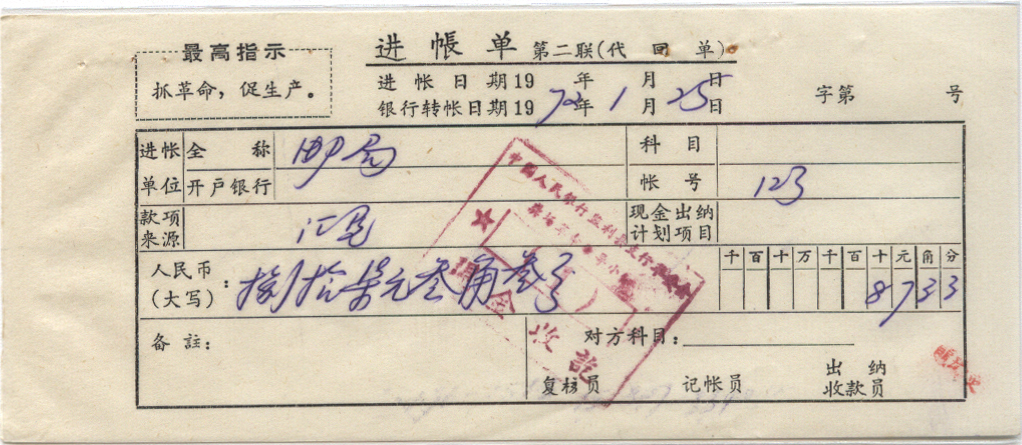 最高指示
抓革命，促生产。
进帐单 第二联(代回单)
进帐日期19 年 月 日
银行转帐日期1972年1月25日
字第 号
进帐单位 全称 邮局 科目
开户银行 帐号 123
款项来源 汇兑 现金出纳计划项目
人民币(大写)： 捌拾柒元叁角叁分
千百十万千百十元角分
8733
备註： 对方科目：
复核员 记帐员 出纳收款员
中国人民银行监利县支行
现金收讫